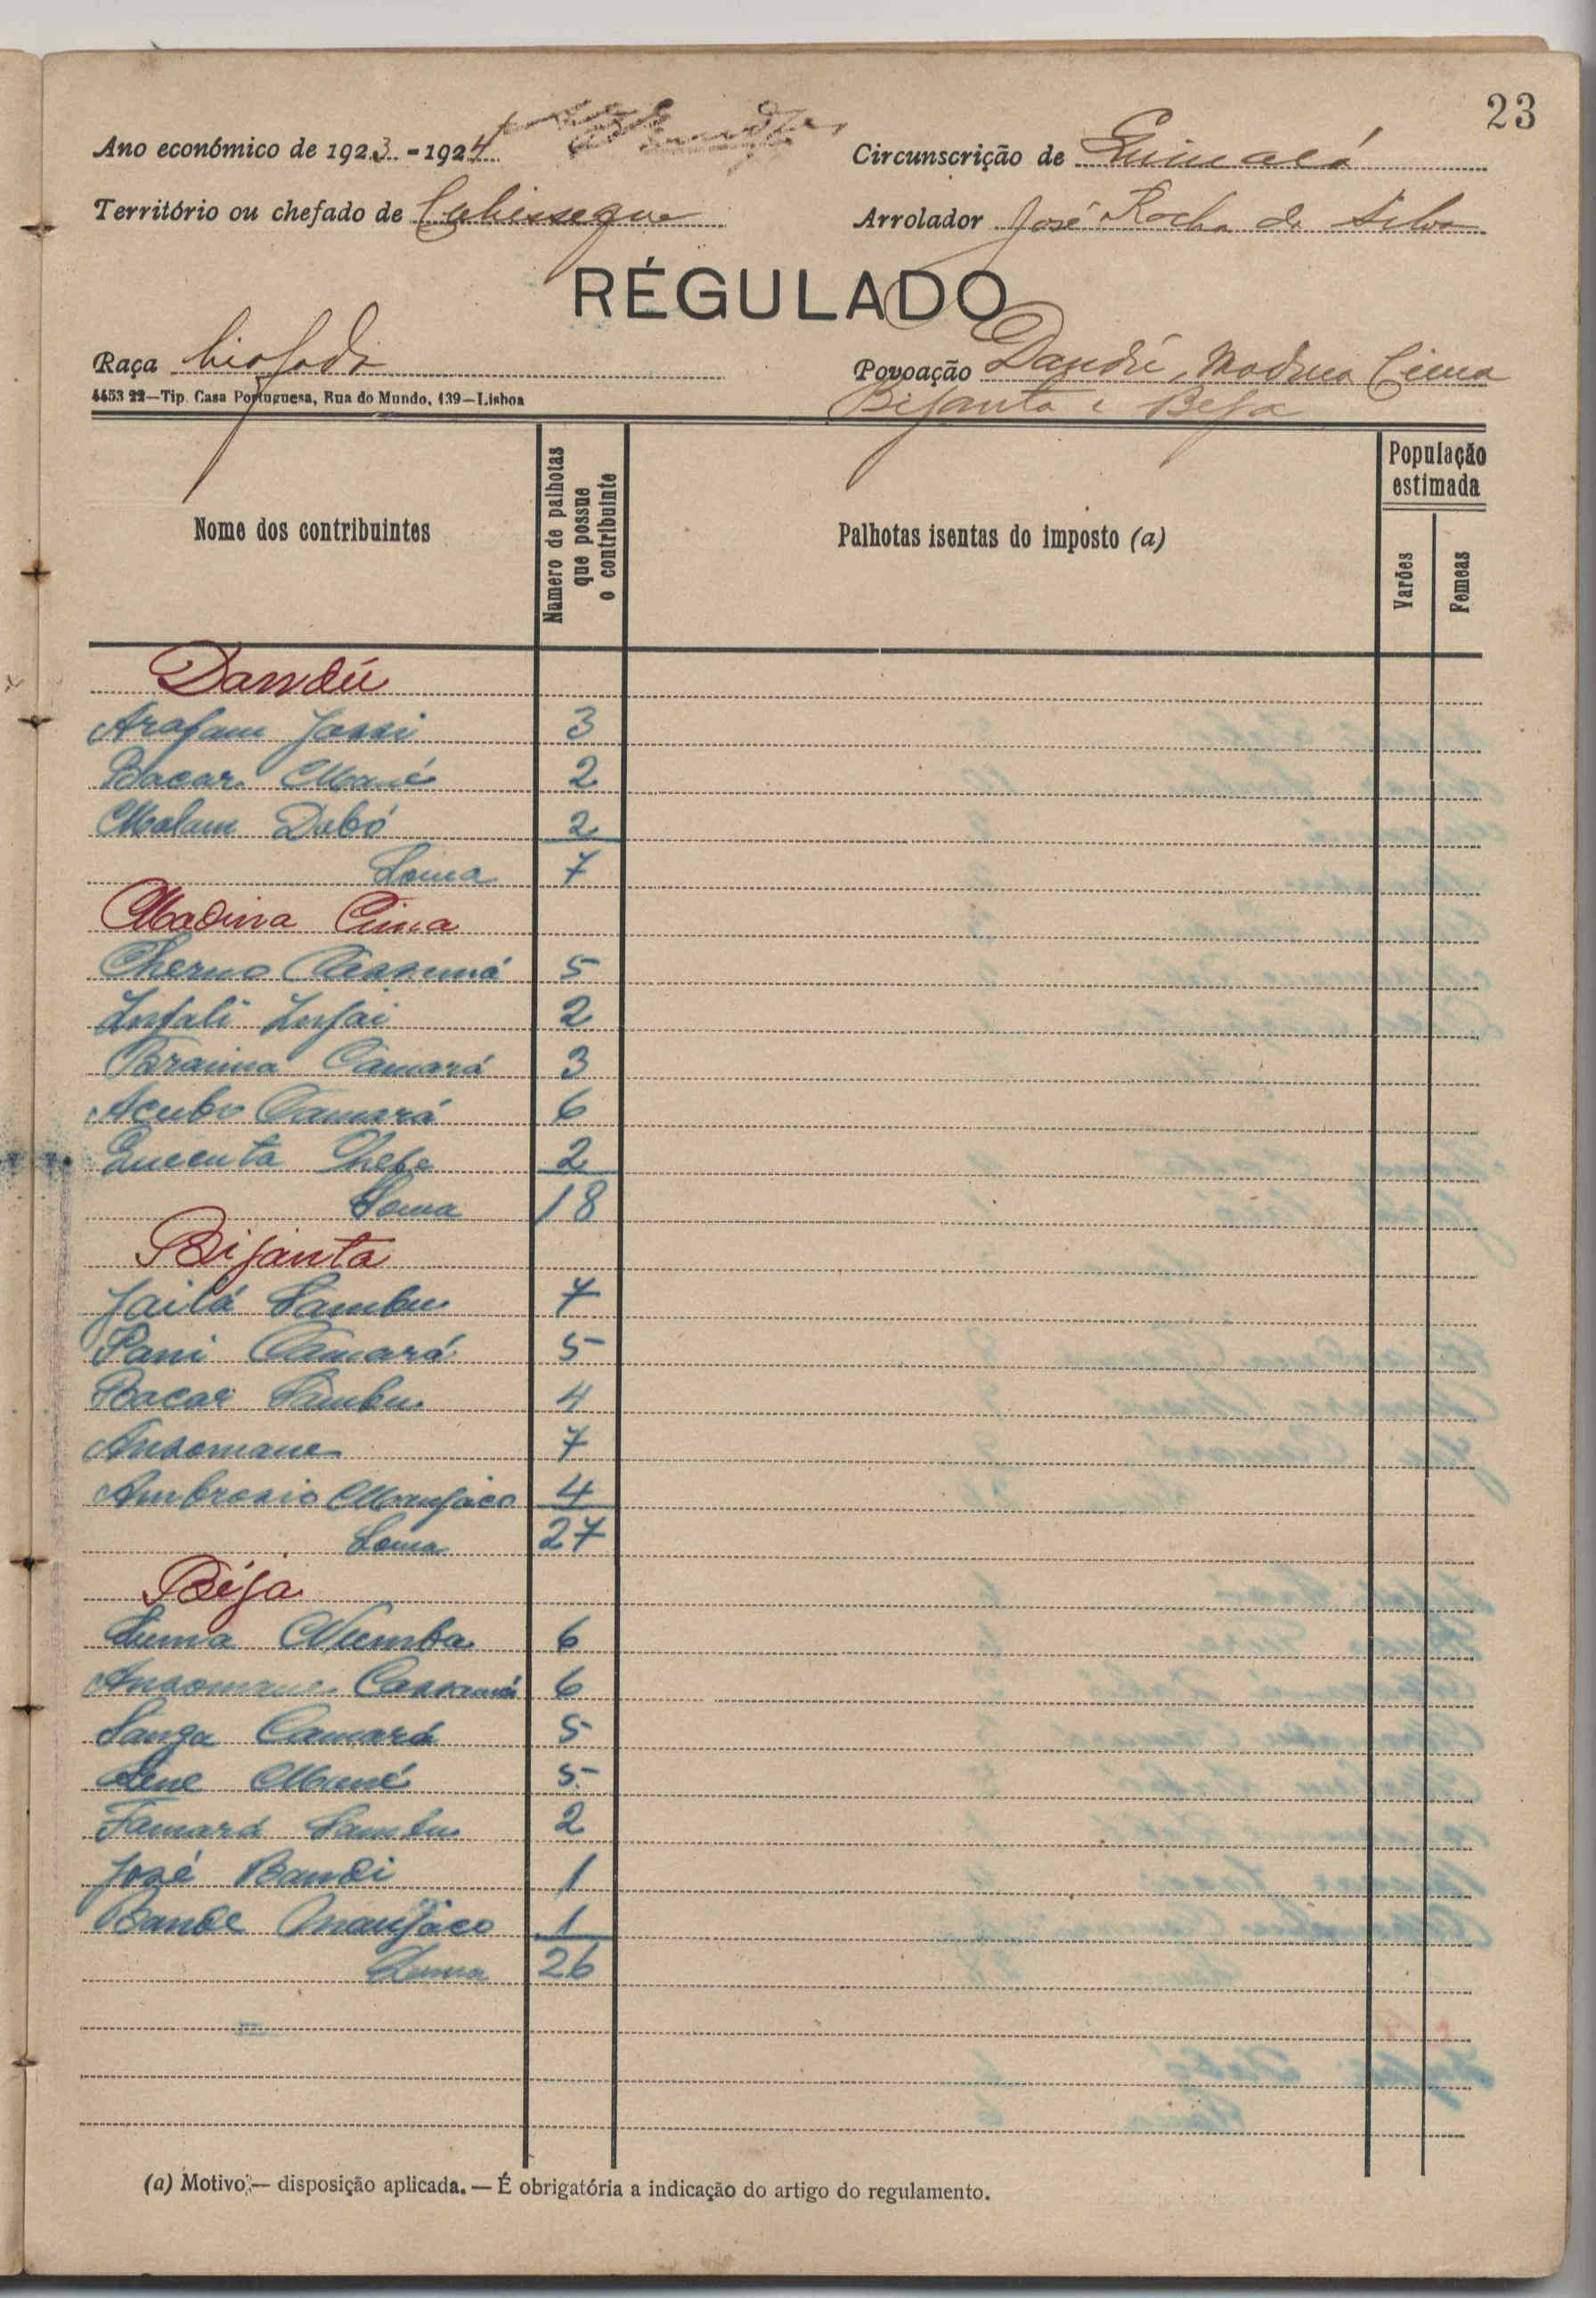 23
Ano económico de 1923-1924
Circunscrição de
Território ou chefado de Cubisseque
Arrolador José Rocha da Silva
RÉGULADO
Raça biafada
Povoação Dandú, Madina Cima
Bijanta e Beja
4453 22—Tip. Casa Portuguesa, Rua do Mundo, 139—Lisboa
Nome dos contribuintes
Numero de palhotas que possue o contribuinte
Palhotas isentas do imposto (a)
População estimada
Varões
Femeas
Dandú
Arafam Jassi 3
Bacar Mané 2
Malam Dabó 2
Soma 7
Madina Cima
Cherno Cassamá 5
Infali Infai 2
Braima Camará 3
Acubo Camará 6
Quecuta 2
Soma 18
Bijanta
Jailá Sambu 7
Sani Camará 5
Bacar Sambu 4
Ansomane 7
Ambrosio Manjaco 4
Soma 27
Béja
Suma Numba 6
Ansomane Cassamá 6
Sanga Camará 5
Sene Mané 5
Famará Sambu 2
José Bandi 1
Bande Manjaco 1
Soma 26
(a) Motivo — disposição aplicada. — É obrigatória a indicação do artigo do regulamento.